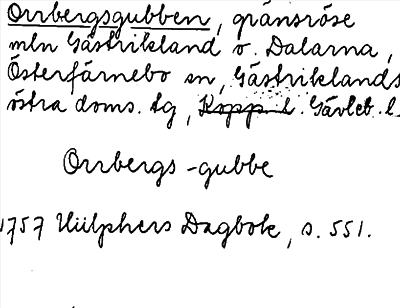 Orrbergsgubben, gränsröse
mln Gästrikland o. Dalarna,
Österfärnebo sn, Gästriklands
östra doms. tg, Kopp. l. Gävleb. l.
Orrbergs-gubbe
1757 Hülphers Dagbok, s. 551.